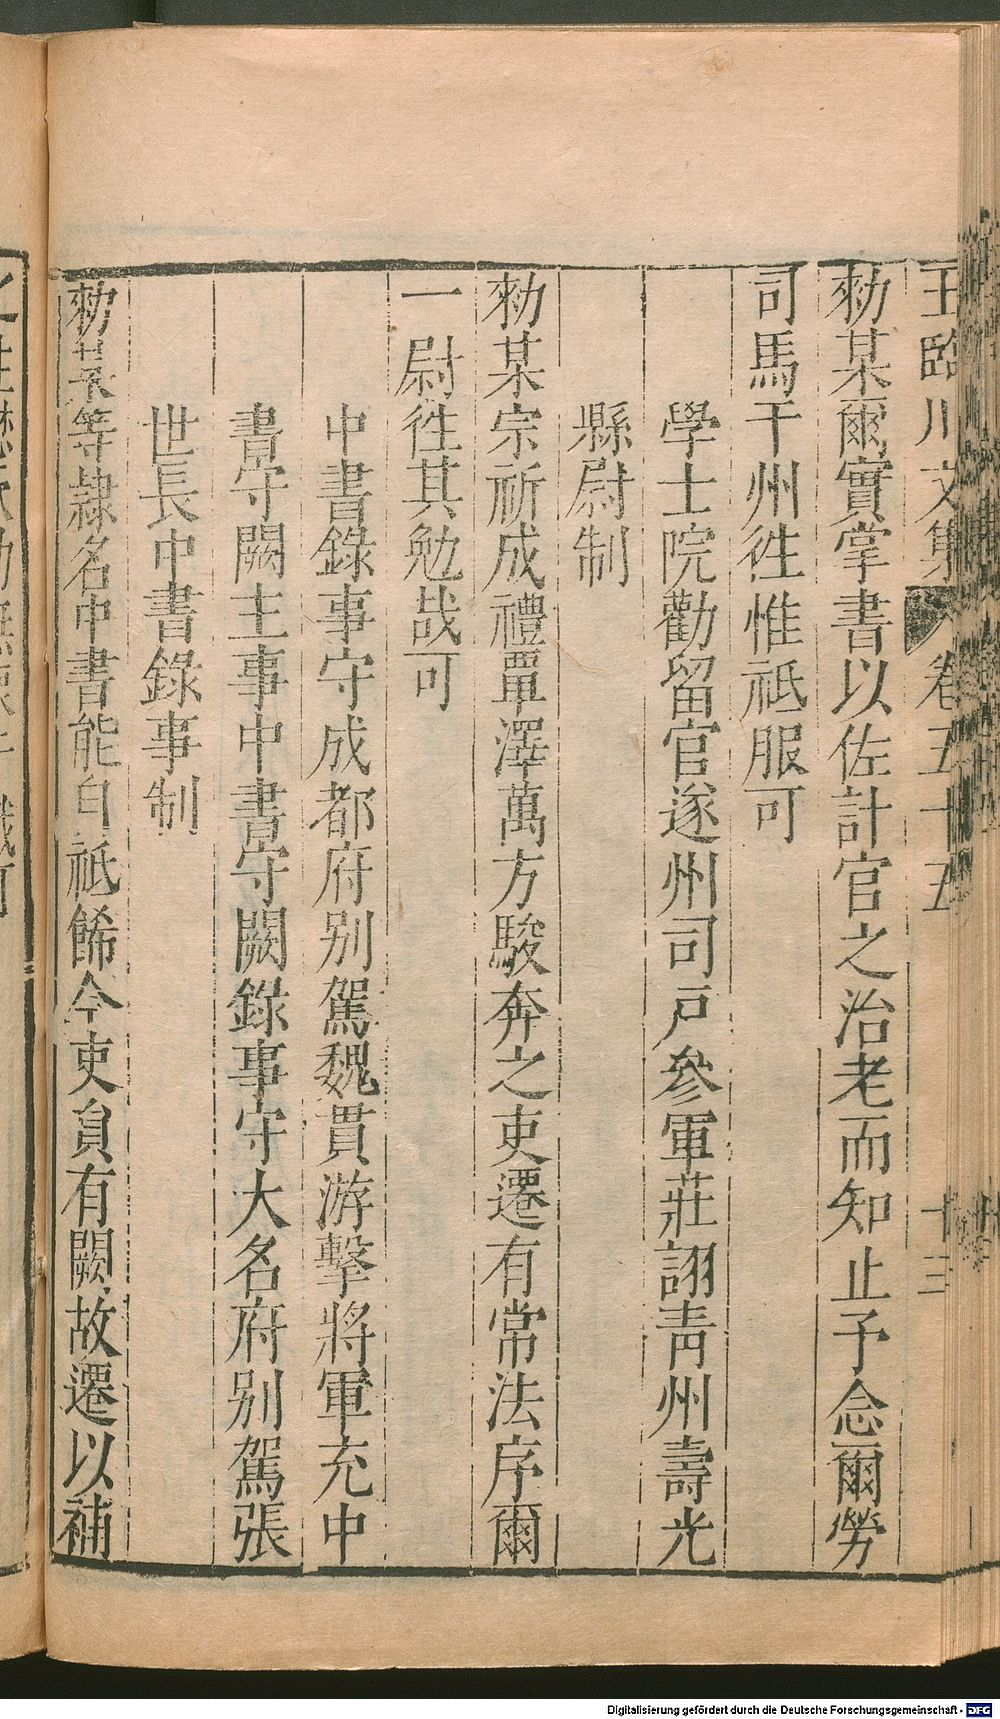 王臨川文集 卷五十五 十三
勑某爾實掌書以佐計官之治老而知止予念爾勞
司馬于州徃惟祗服可
學士院勸留官遂州司戶參軍莊詡青州壽光
縣尉制
勑某宗祈成禮覃澤萬方駿奔之吏遷有常法序爾
一尉徃其勉哉可
中書錄事守成都府别駕魏貫游擊將軍充中
書守闕主事中書守闕錄事守大名府别駕張
世長中書錄事制
勑某等隷名中書能自祗飭今吏負有闕故遷以補
Digitalisierung gefördert durch die Deutsche Forschungsgemeinschaft - DFG